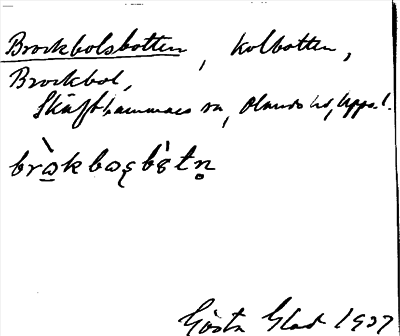 Brockbolsbotten, Kolbotten,
Brockbol,
Skäfthammars sn, Olands hd, Upps. l.
Gösta Glad 1937